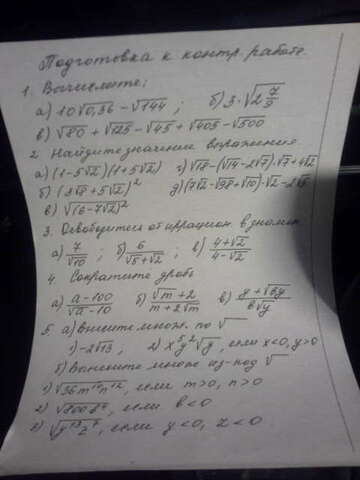 Подготовка к контр. работе.
1. Вычислите:
а) 10√0,36 - √144 ; б) 3·√2 7/9
в) √80 + √125 - √45 + √405 - √500
2. Найдите значение выражения.
а) (1-5√2)(1+5√2) г) √18-(√14-2√7)·√7+4√2
б) (2√8+5√2)² д) (7√2-√98+√10)·√2-2√5
в) √(6-7√2)²
3. Освободитесь от иррацион. в знамен.
а) 7/√10 ; б) 6/(√5+√2) ; в) (4+√2)/(4-√2)
4. Сократите дробь
а) (а-100)/(√а-10) б) (√m+2)/(m+2√m) в) (y+√by)/(b√y)
5. а) внесите множ. по √
1) -2√13 ; 2) x⁵y²√y , если x<0, y>0
б) Вынесите множ из-под √
1) √36m¹⁰n¹², если m>0, n>0
2) если b<0
3) если y<0, z<0